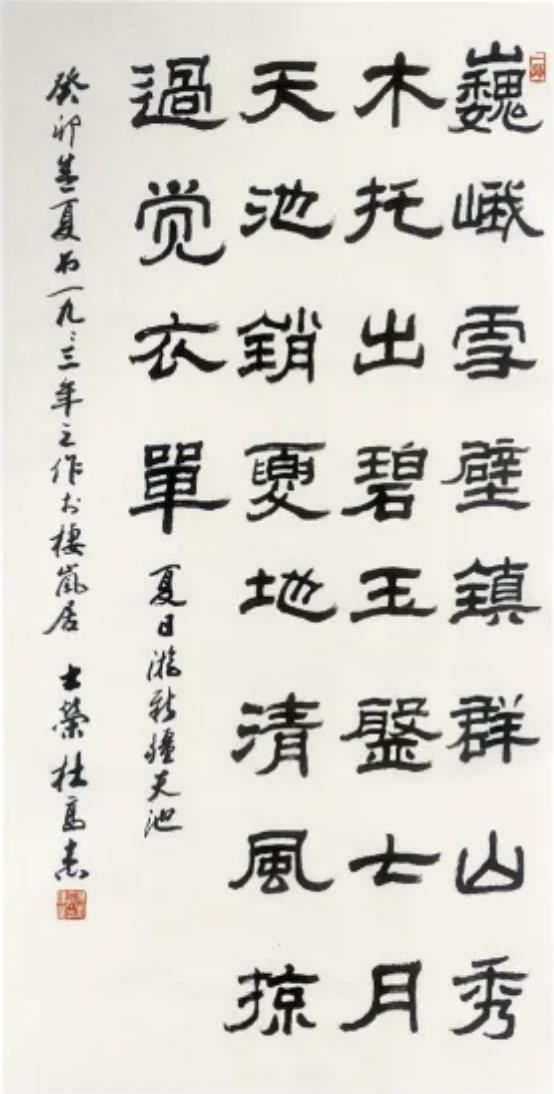 巍峨雪壁鎮群山秀
木托出碧玉盤七月
天池銷夏地清風掠
過觉衣單
夏日游新疆天池
癸卯益夏书一九八三年之作于棲嵐居 士榮杜高志